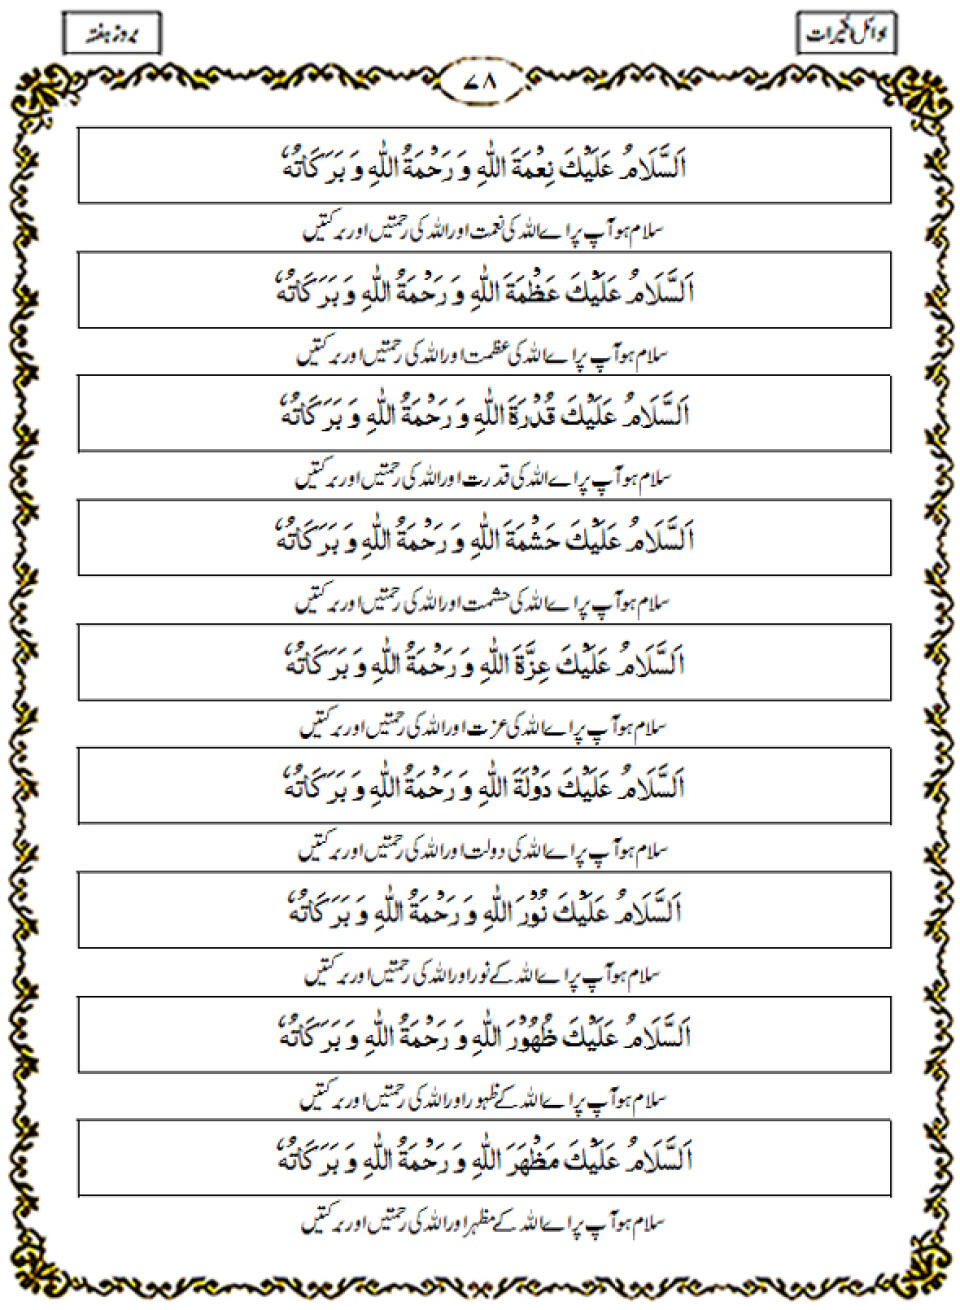 اوائل الخیرات
بروز ہفتہ
۷۸
اَلسَّلَامُ عَلَیْكَ نِعْمَةَ اللّٰهِ وَ رَحْمَةُ اللّٰهِ وَ بَرَكَاتُهٗ
سلام ہو آپ پر اے اللہ کی نعمت اور اللہ کی رحمتیں اور برکتیں
اَلسَّلَامُ عَلَیْكَ عَظْمَةَ اللّٰهِ وَ رَحْمَةُ اللّٰهِ وَ بَرَكَاتُهٗ
سلام ہو آپ پر اے اللہ کی عظمت اور اللہ کی رحمتیں اور برکتیں
اَلسَّلَامُ عَلَیْكَ قُدْرَةَ اللّٰهِ وَ رَحْمَةُ اللّٰهِ وَ بَرَكَاتُهٗ
سلام ہو آپ پر اے اللہ کی قدرت اور اللہ کی رحمتیں اور برکتیں
اَلسَّلَامُ عَلَیْكَ حَشْمَةَ اللّٰهِ وَ رَحْمَةُ اللّٰهِ وَ بَرَكَاتُهٗ
سلام ہو آپ پر اے اللہ کی حشمت اور اللہ کی رحمتیں اور برکتیں
اَلسَّلَامُ عَلَیْكَ عِزَّةَ اللّٰهِ وَ رَحْمَةُ اللّٰهِ وَ بَرَكَاتُهٗ
سلام ہو آپ پر اے اللہ کی عزت اور اللہ کی رحمتیں اور برکتیں
اَلسَّلَامُ عَلَیْكَ دَوْلَةَ اللّٰهِ وَ رَحْمَةُ اللّٰهِ وَ بَرَكَاتُهٗ
سلام ہو آپ پر اے اللہ کی دولت اور اللہ کی رحمتیں اور برکتیں
اَلسَّلَامُ عَلَیْكَ نُوْرَ اللّٰهِ وَ رَحْمَةُ اللّٰهِ وَ بَرَكَاتُهٗ
سلام ہو آپ پر اے اللہ کے نور اور اللہ کی رحمتیں اور برکتیں
اَلسَّلَامُ عَلَیْكَ ظُهُوْرَ اللّٰهِ وَ رَحْمَةُ اللّٰهِ وَ بَرَكَاتُهٗ
سلام ہو آپ پر اے اللہ کے ظہور اور اللہ کی رحمتیں اور برکتیں
اَلسَّلَامُ عَلَیْكَ مَظْهَرَ اللّٰهِ وَ رَحْمَةُ اللّٰهِ وَ بَرَكَاتُهٗ
سلام ہو آپ پر اے اللہ کے مظہر اور اللہ کی رحمتیں اور برکتیں